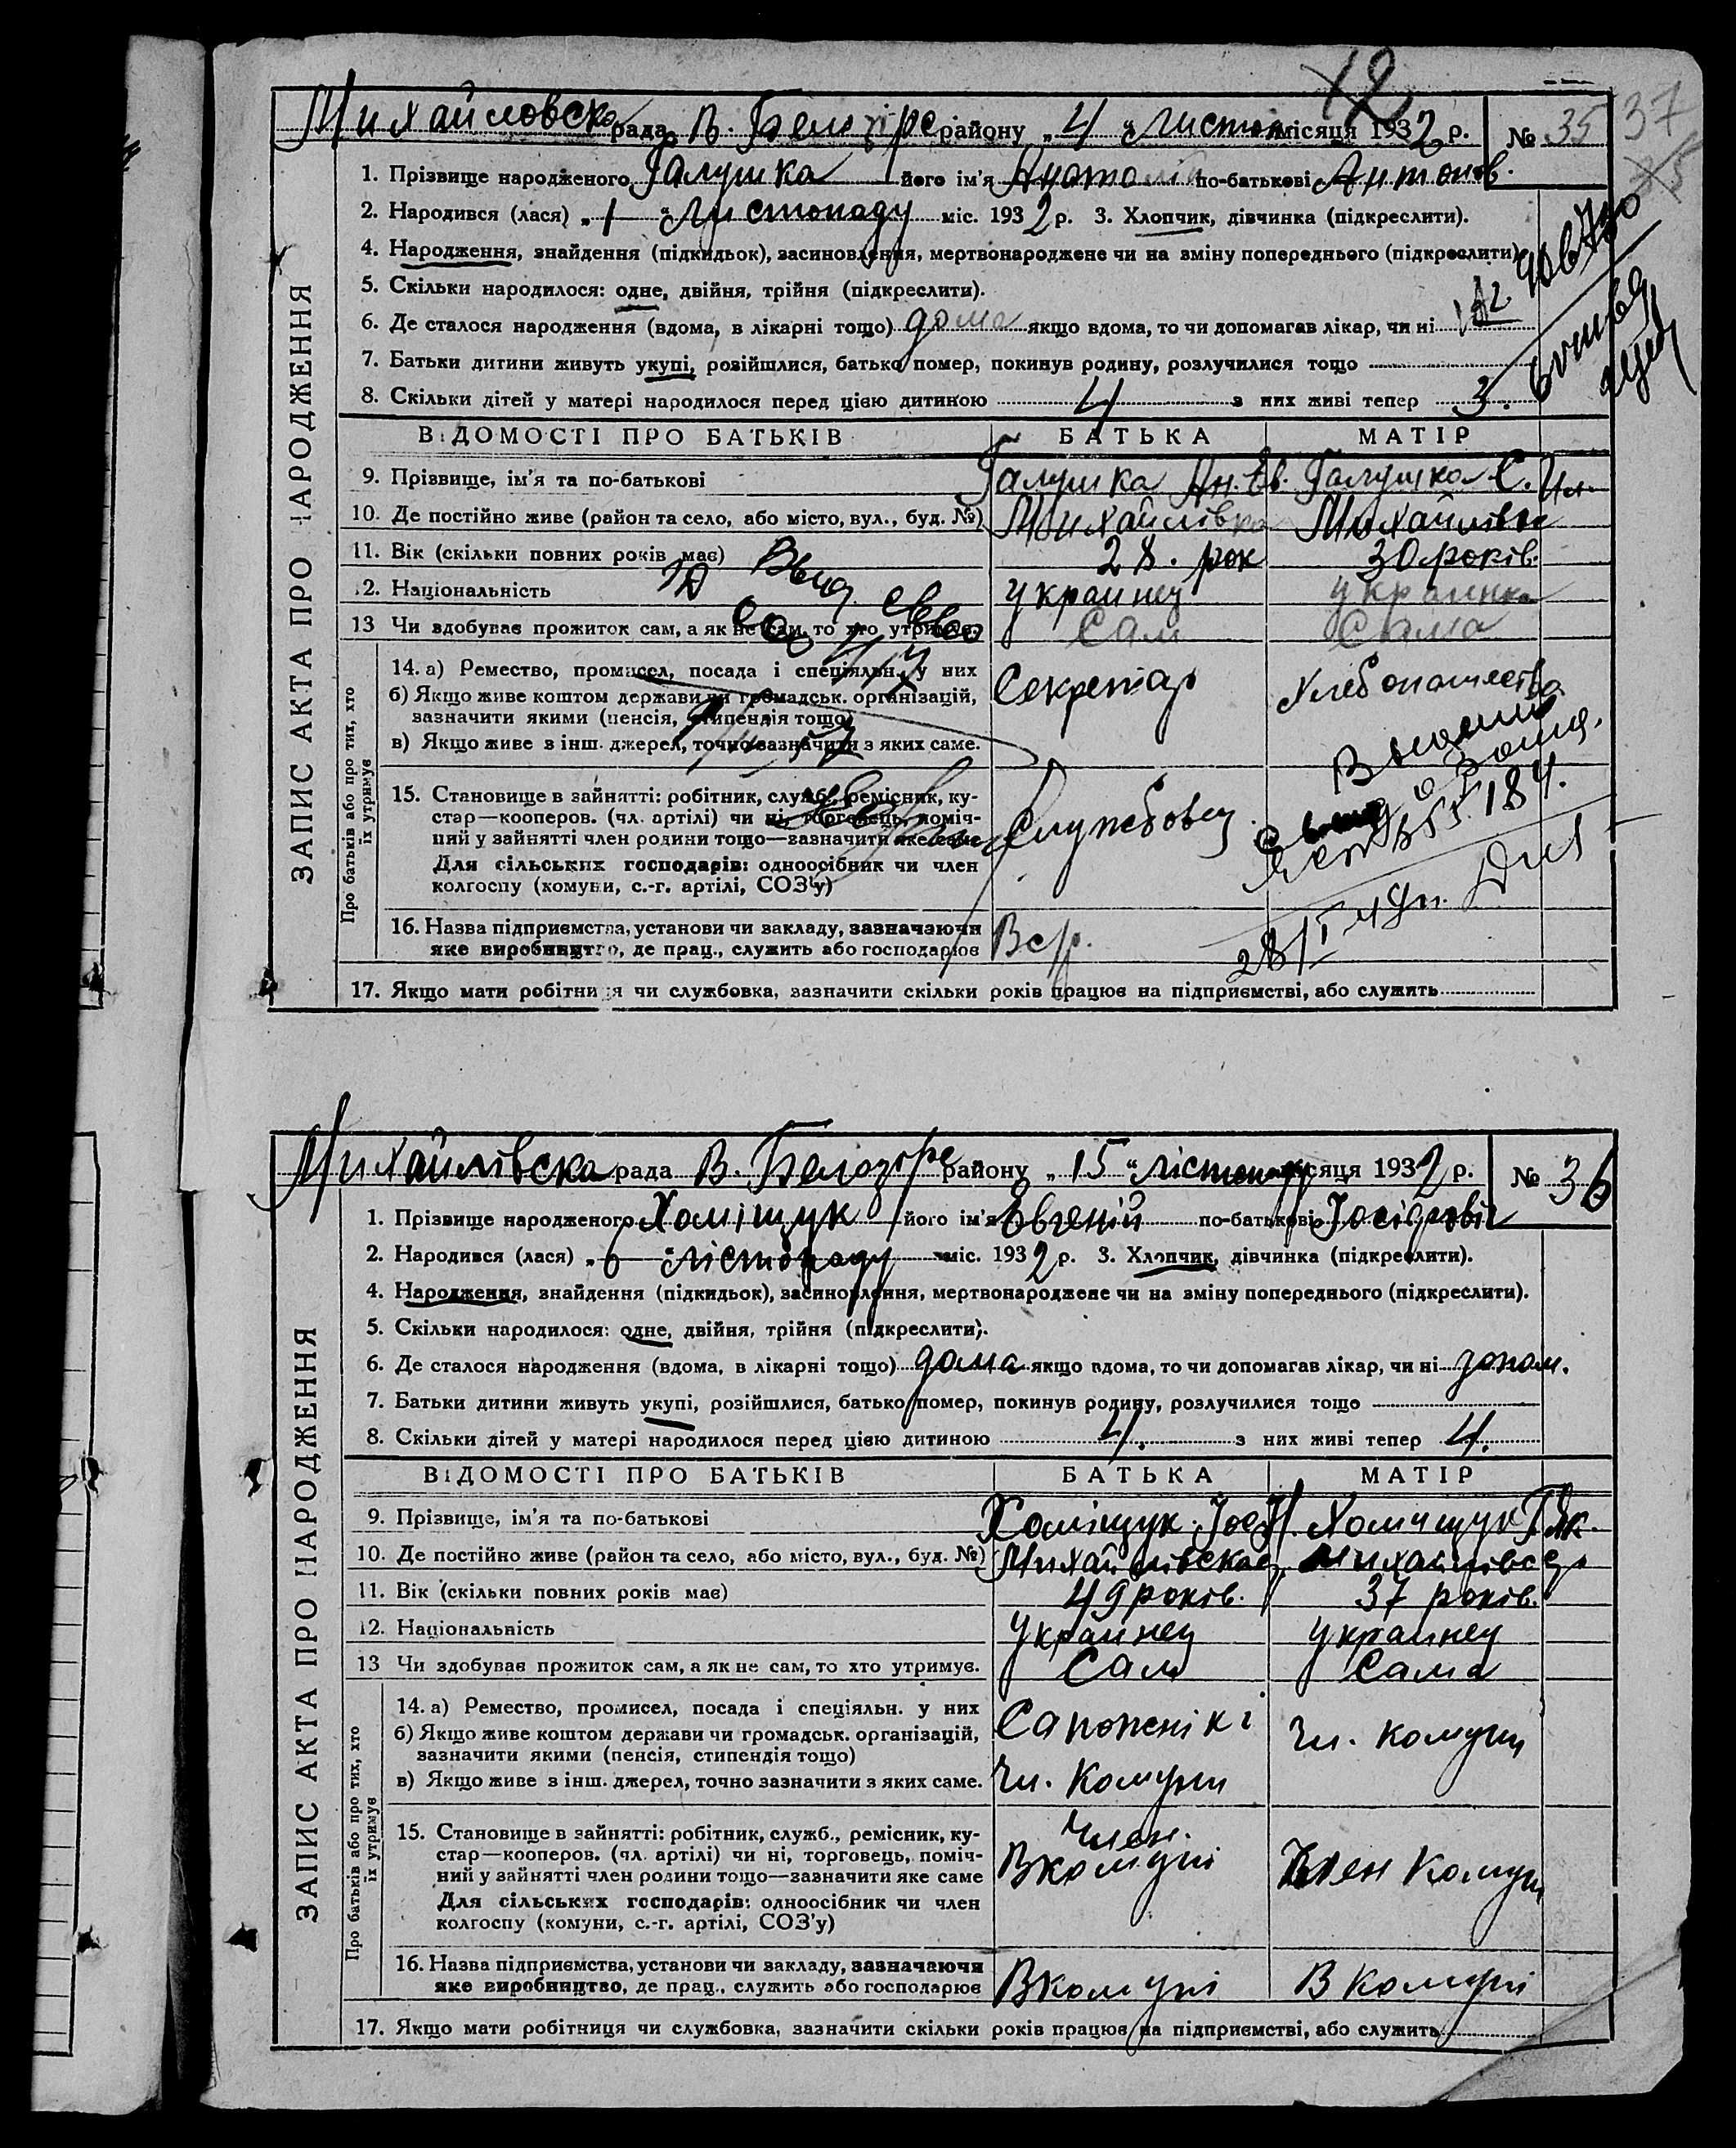 12
Михайловска рада В. Белозіре району „4" листоп місяця 1932 р. № 35 37
1. Прізвище народженого Галушка його ім'я Анатолій по-батькові Антонов.
2. Народився (лася) „1" листопаду міс. 1932 р. 3. Хлопчик, дівчинка (підкреслити).
4. Народження, знайдення (підкидьок), засиновлення, мертвонароджене чи на зміну попереднього (підкреслити)
5. Скільки народилося: одне, двійня, трійня (підкреслити).
6. Де сталося народження (вдома, в лікарні тощо) дома якщо вдома, то чи допомагав лікар, чи ні
7. Батьки дитини живуть укупі, розійшлися, батько помер, покинув родину, розлучилися тощо
8. Скільки дітей у матері народилося перед цією дитиною 4 з них живі тепер 3.
ЗАПИС АКТА ПРО НАРОДЖЕННЯ
ВІДОМОСТІ ПРО БАТЬКІВ БАТЬКА МАТІР
9. Прізвище, ім'я та по-батькові Галушка Ан. Єв. Галушка Є. Ил.
10. Де постійно живе (район та село, або місто, вул., буд. №) Михайлівка Михайлівк
11. Вік (скільки повних років має) 28. рок 30 років.
12. Національність украинец украинка
13 Чи здобуває прожиток сам, а як не сам, то хто утримує. Сам Сама
Про батьків або про тих, хто їх утримує
14. а) Ремество, промисел, посада і спеціяльн. у них Секретар Хлебопашество
б) Якщо живе коштом держави чи громадськ. організацій,
зазначити якими (пенсія, стипендія тощо)
в) Якщо живе з інш. джерел, точно зазначити з яких саме.
15. Становище в зайнятті: робітник, служб., ремісник, ку-
стар—кооперов. (чл. артілі) чи ні, торговець, поміч-
ний у зайнятті член родини тощо—зазначити яке саме Службовец
Для сільських господарів: одноосібник чи член
колгоспу (комуни, с.-г. артілі, СОЗ'у)
16. Назва підприємства, установи чи закладу, зазначаючи
яке виробництво, де прац., служить або господарює
17. Якщо мати робітниця чи службовка, зазначити скільки років працює на підприємстві, або служить
Михайлівска рада В. Белозіре району „15" лістопаду місяця 1932 р. № 36
1. Прізвище народженого Хоміщук його ім'я Євгеній по-батькові Иосіфовіч
2. Народився (лася) „6" лістопаду міс. 1932 р. 3. Хлопчик, дівчинка (підкреслити).
4. Народження, знайдення (підкидьок), засиновлення, мертвонароджене чи на зміну попереднього (підкреслити).
5. Скільки народилося: одне, двійня, трійня (підкреслити).
6. Де сталося народження (вдома, в лікарні тощо) дома якщо вдома, то чи допомагав лікар, чи ні
7. Батьки дитини живуть укупі, розійшлися, батько помер, покинув родину, розлучилися тощо
8. Скільки дітей у матері народилося перед цією дитиною 4. з них живі тепер 4.
ЗАПИС АКТА ПРО НАРОДЖЕННЯ
ВІДОМОСТІ ПРО БАТЬКІВ БАТЬКА МАТІР
9. Прізвище, ім'я та по-батькові Хоміщук Хомищук
10. Де постійно живе (район та село, або місто, вул., буд. №)
11. Вік (скільки повних років має) 49 років. 37 років.
12. Національність украинец украинец
13 Чи здобуває прожиток сам, а як не сам, то хто утримує. Сам Сама
Про батьків або про тих, хто їх утримує
14. а) Ремество, промисел, посада і спеціяльн. у них Сапожнікі Чл. комуни
б) Якщо живе коштом держави чи громадськ. організацій,
зазначити якими (пенсія, стипендія тощо)
в) Якщо живе з інш. джерел, точно зазначити з яких саме. Чл. Комуни
15. Становище в зайнятті: робітник, служб., ремісник, ку- член.
стар—кооперов. (чл. артілі) чи ні, торговець, поміч- В комуні Член Комуни
ний у зайнятті член родини тощо—зазначити яке саме
Для сільських господарів: одноосібник чи член
колгоспу (комуни, с.-г. артілі, СОЗ'у)
16. Назва підприємства, установи чи закладу, зазначаючи
яке виробництво, де прац., служить або господарює В комуні В комуні
17. Якщо мати робітниця чи службовка, зазначити скільки років працює на підприємстві, або служить